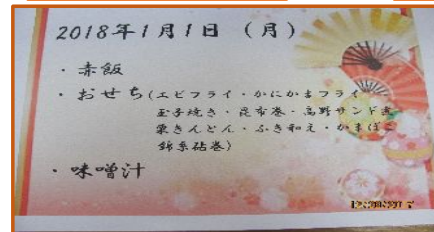 2018年1月1日 (月)
・赤飯
・おせち(エビフライ・かにかまフライ
玉子焼き・昆布巻・高野サンド煮
栗きんとん・ふき和え・かまぼこ
錦糸砧巻)
・味噌汁